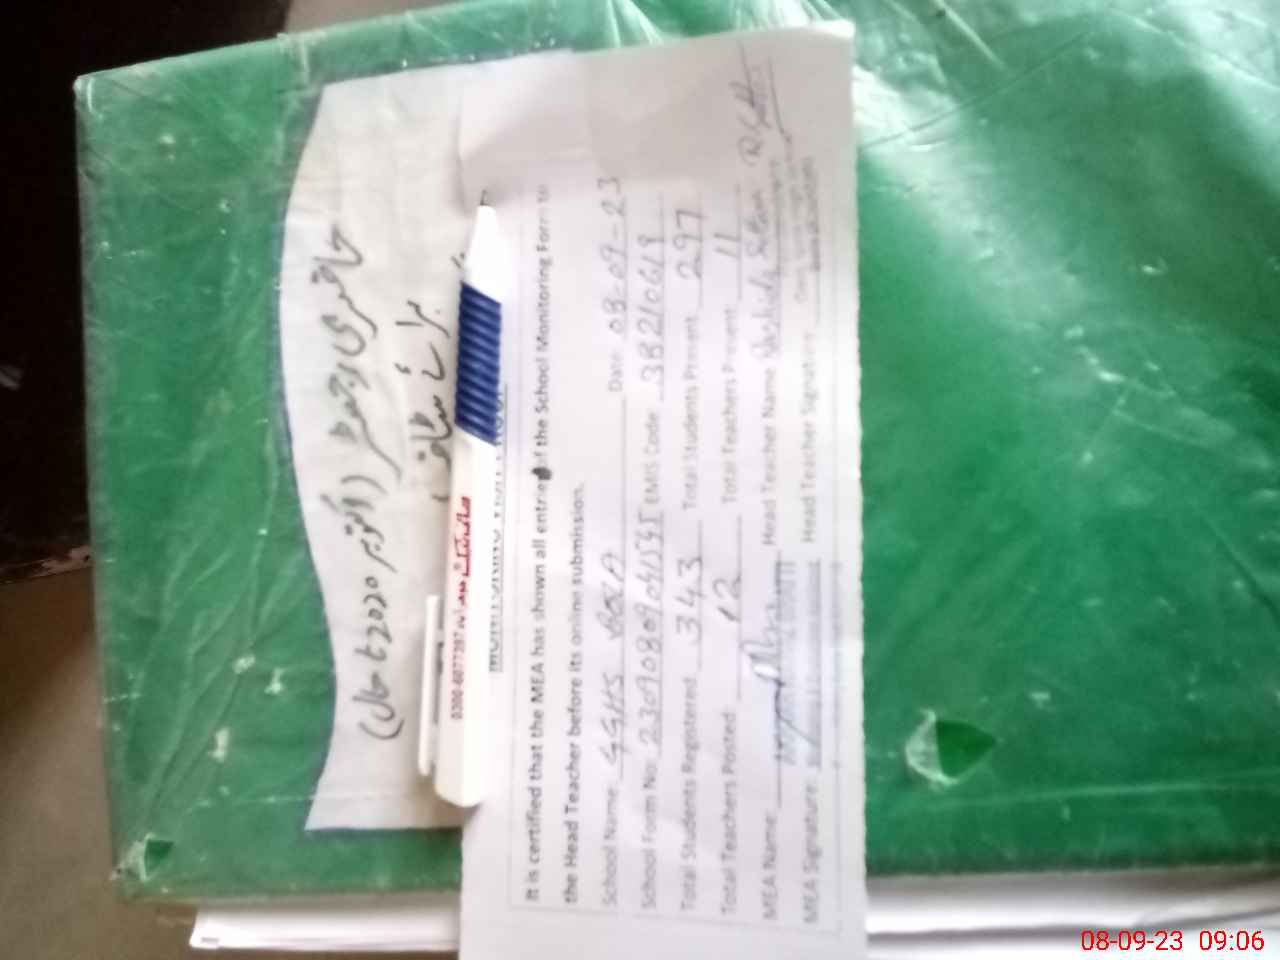 حاضری رجسٹر (اکتوبر 2020 تا حال)
برائے سٹاف
0300-6077397
MONITORING VISIT PROOF
It is certified that the MEA has shown all entries of the School Monitoring Form to
the Head Teacher before its online submission.
School Name: GGHS Date: 08-09-23
School Form No: EMIS Code 38210619
Total Students Registered 343 Total Students Present 297
Total Teachers Posted 12 Total Teachers Present 11
MEA Name: Head Teacher Name
MEA Signature: Head Teacher Signature:
08-09-23 09:06